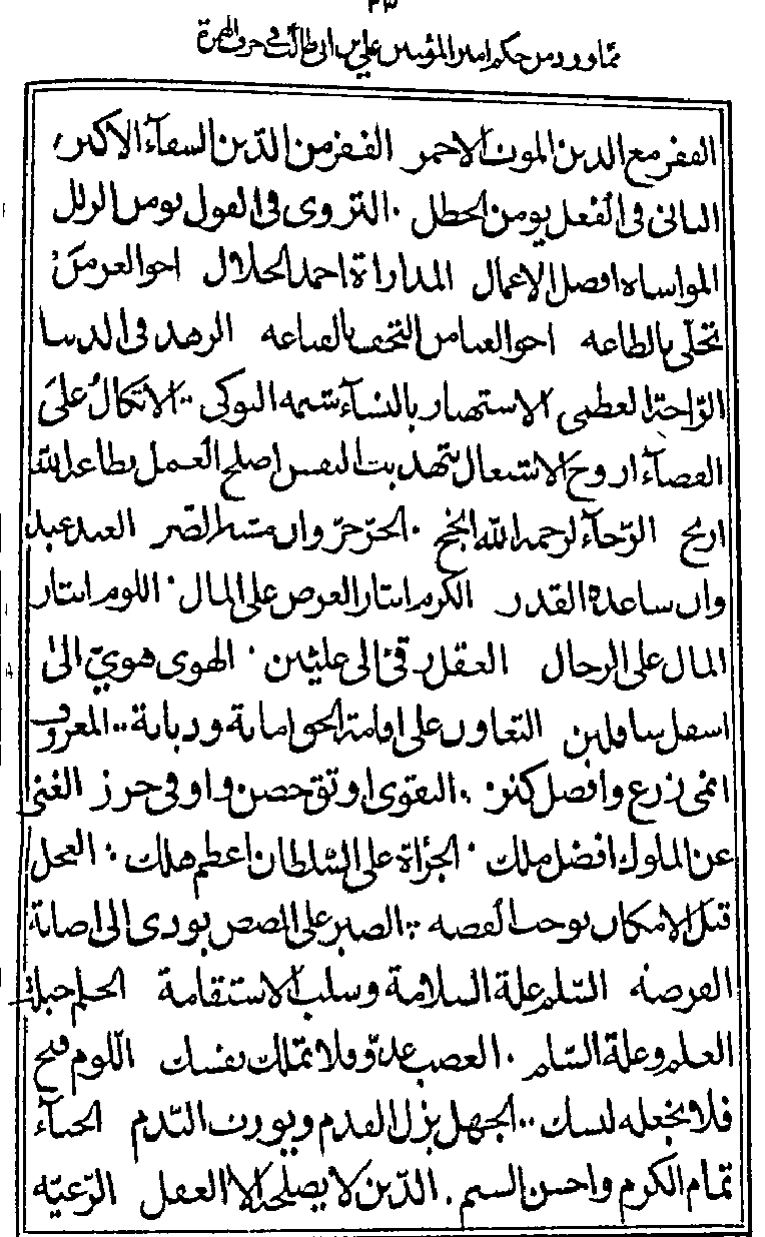 ٢٣
مما ورد من حكم امير المؤمنين علي بن ابي طالب في حرف الهمزة
الفقر مع الدين الموت الاحمر الفقر من الدين الشقآء الاكبر
التانى في الفعل يومن الخطل . التروى في القول يومن الزلل
المواساه افضل الاعمال المداراة احمد الخلال اخو العز من
تحلّى بالطاعه اخو الغنا من التحف بالقناعه الزهد في الدنيا
الرّاحة العظمى الاستهتار بالنسآء شيمه النوكى .. الاتكال على
القضآء اروح الاشتغال بتهذيب النفس اصلح العمل بطاعة الله
اربح الرّجآء لرحمة الله انجح . الحرّ حرّ وان مسّه الضّر العبد عبد
وان ساعده القدر الكرم ايثار العرض على المال . اللوم ايثار
المال على الرجال العقل رقىّ الى عليّين . الهوى هويّ الى
اسفل سافلين التعاون على اقامة الحق امانة وديانة .. المعروف
انمى زرع وافضل كنز . التقوى اوثق حصن واوقى حرز الغنى
عن الملوك افضل ملك . الجرأة على السّلطان اعظم هلك . العجل
قبل الامكان يوجب الغصه .. الصبر على المضض يودى الى اصابة
الفرصه السّلم علة السلامة وسلب الاستقامة الحلم حيلة
العلم وعلة السّلم . الغضب عدوّ فلا تملكه نفسك اللوم قبح
فلا تجعله لبسك .. الجهل يزل القدم ويورث النّدم الحيآء
تمام الكرم واحسن الشيم . الدّين لا يصلحه الا العقل الرّعيّه